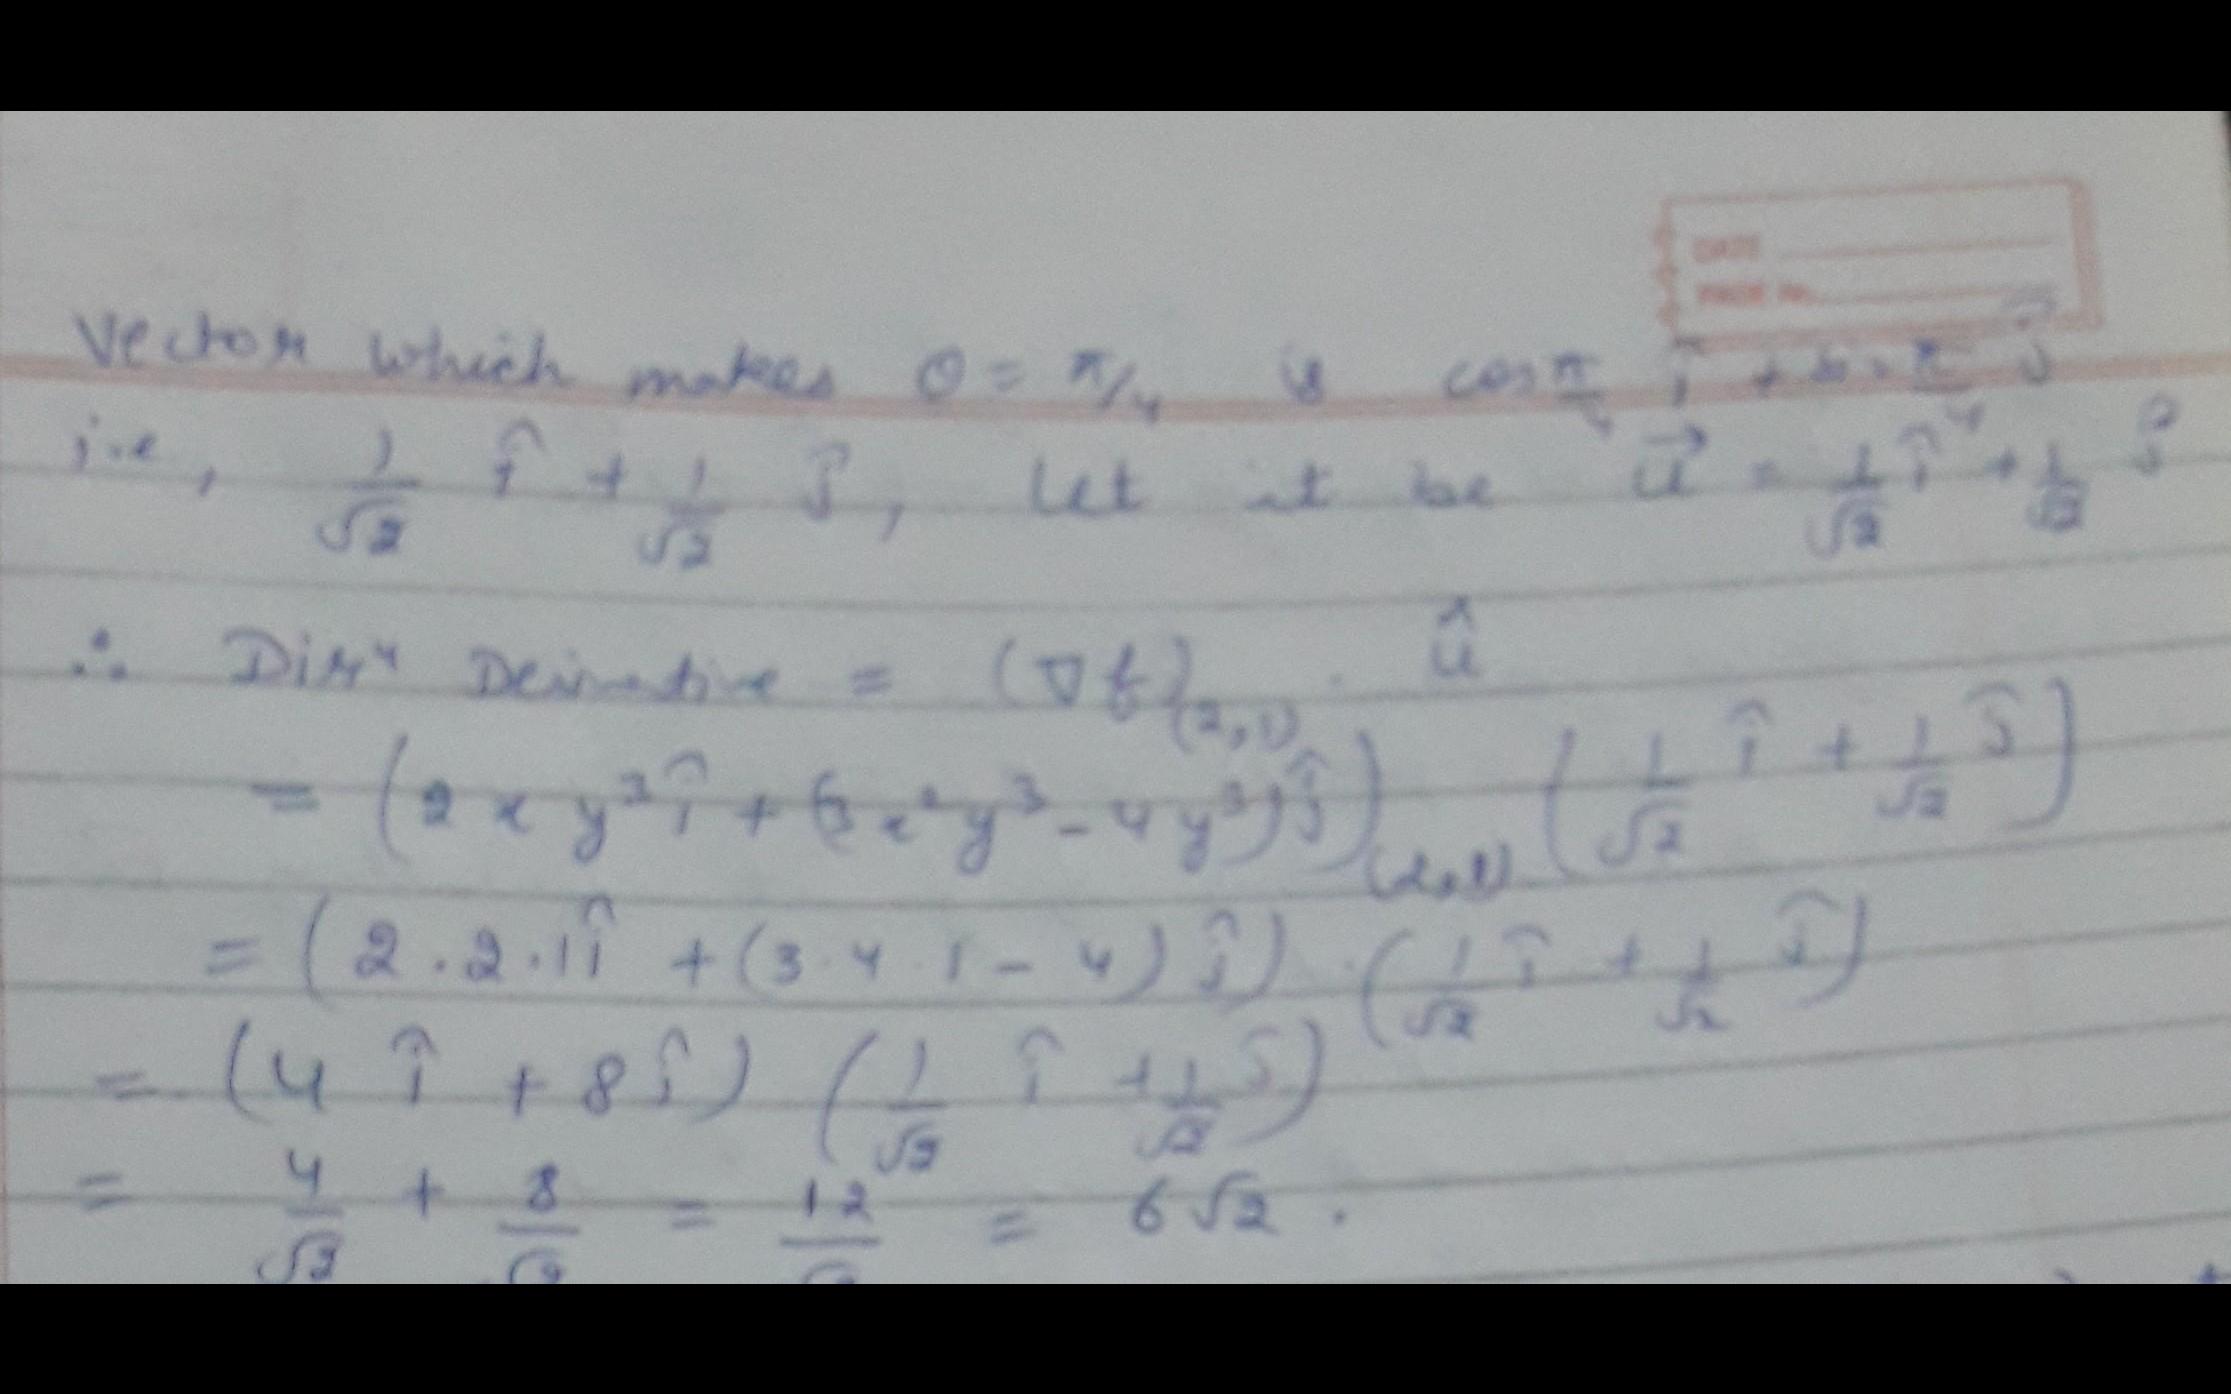 DATE
PAGE No.
Vector which makes θ = π/4 is cos π/4 î + sin π/4 ĵ
i.e, 1/√2 î + 1/√2 ĵ, Let it be u⃗ = 1/√2 î + 1/√2 ĵ
∴ Dirⁿ Derivative = (∇f)(2,1) . û
= (2xy³î + (3x²y³ - 4y³)ĵ)(2,1) (1/√2 î + 1/√2 ĵ)
= (2.2.1î + (3.4.1 - 4)ĵ) . (1/√2 î + 1/√2 ĵ)
= (4î + 8ĵ) (1/√2 î + 1/√2 ĵ)
= 4/√2 + 8/√2 = 12/√2 = 6√2 .